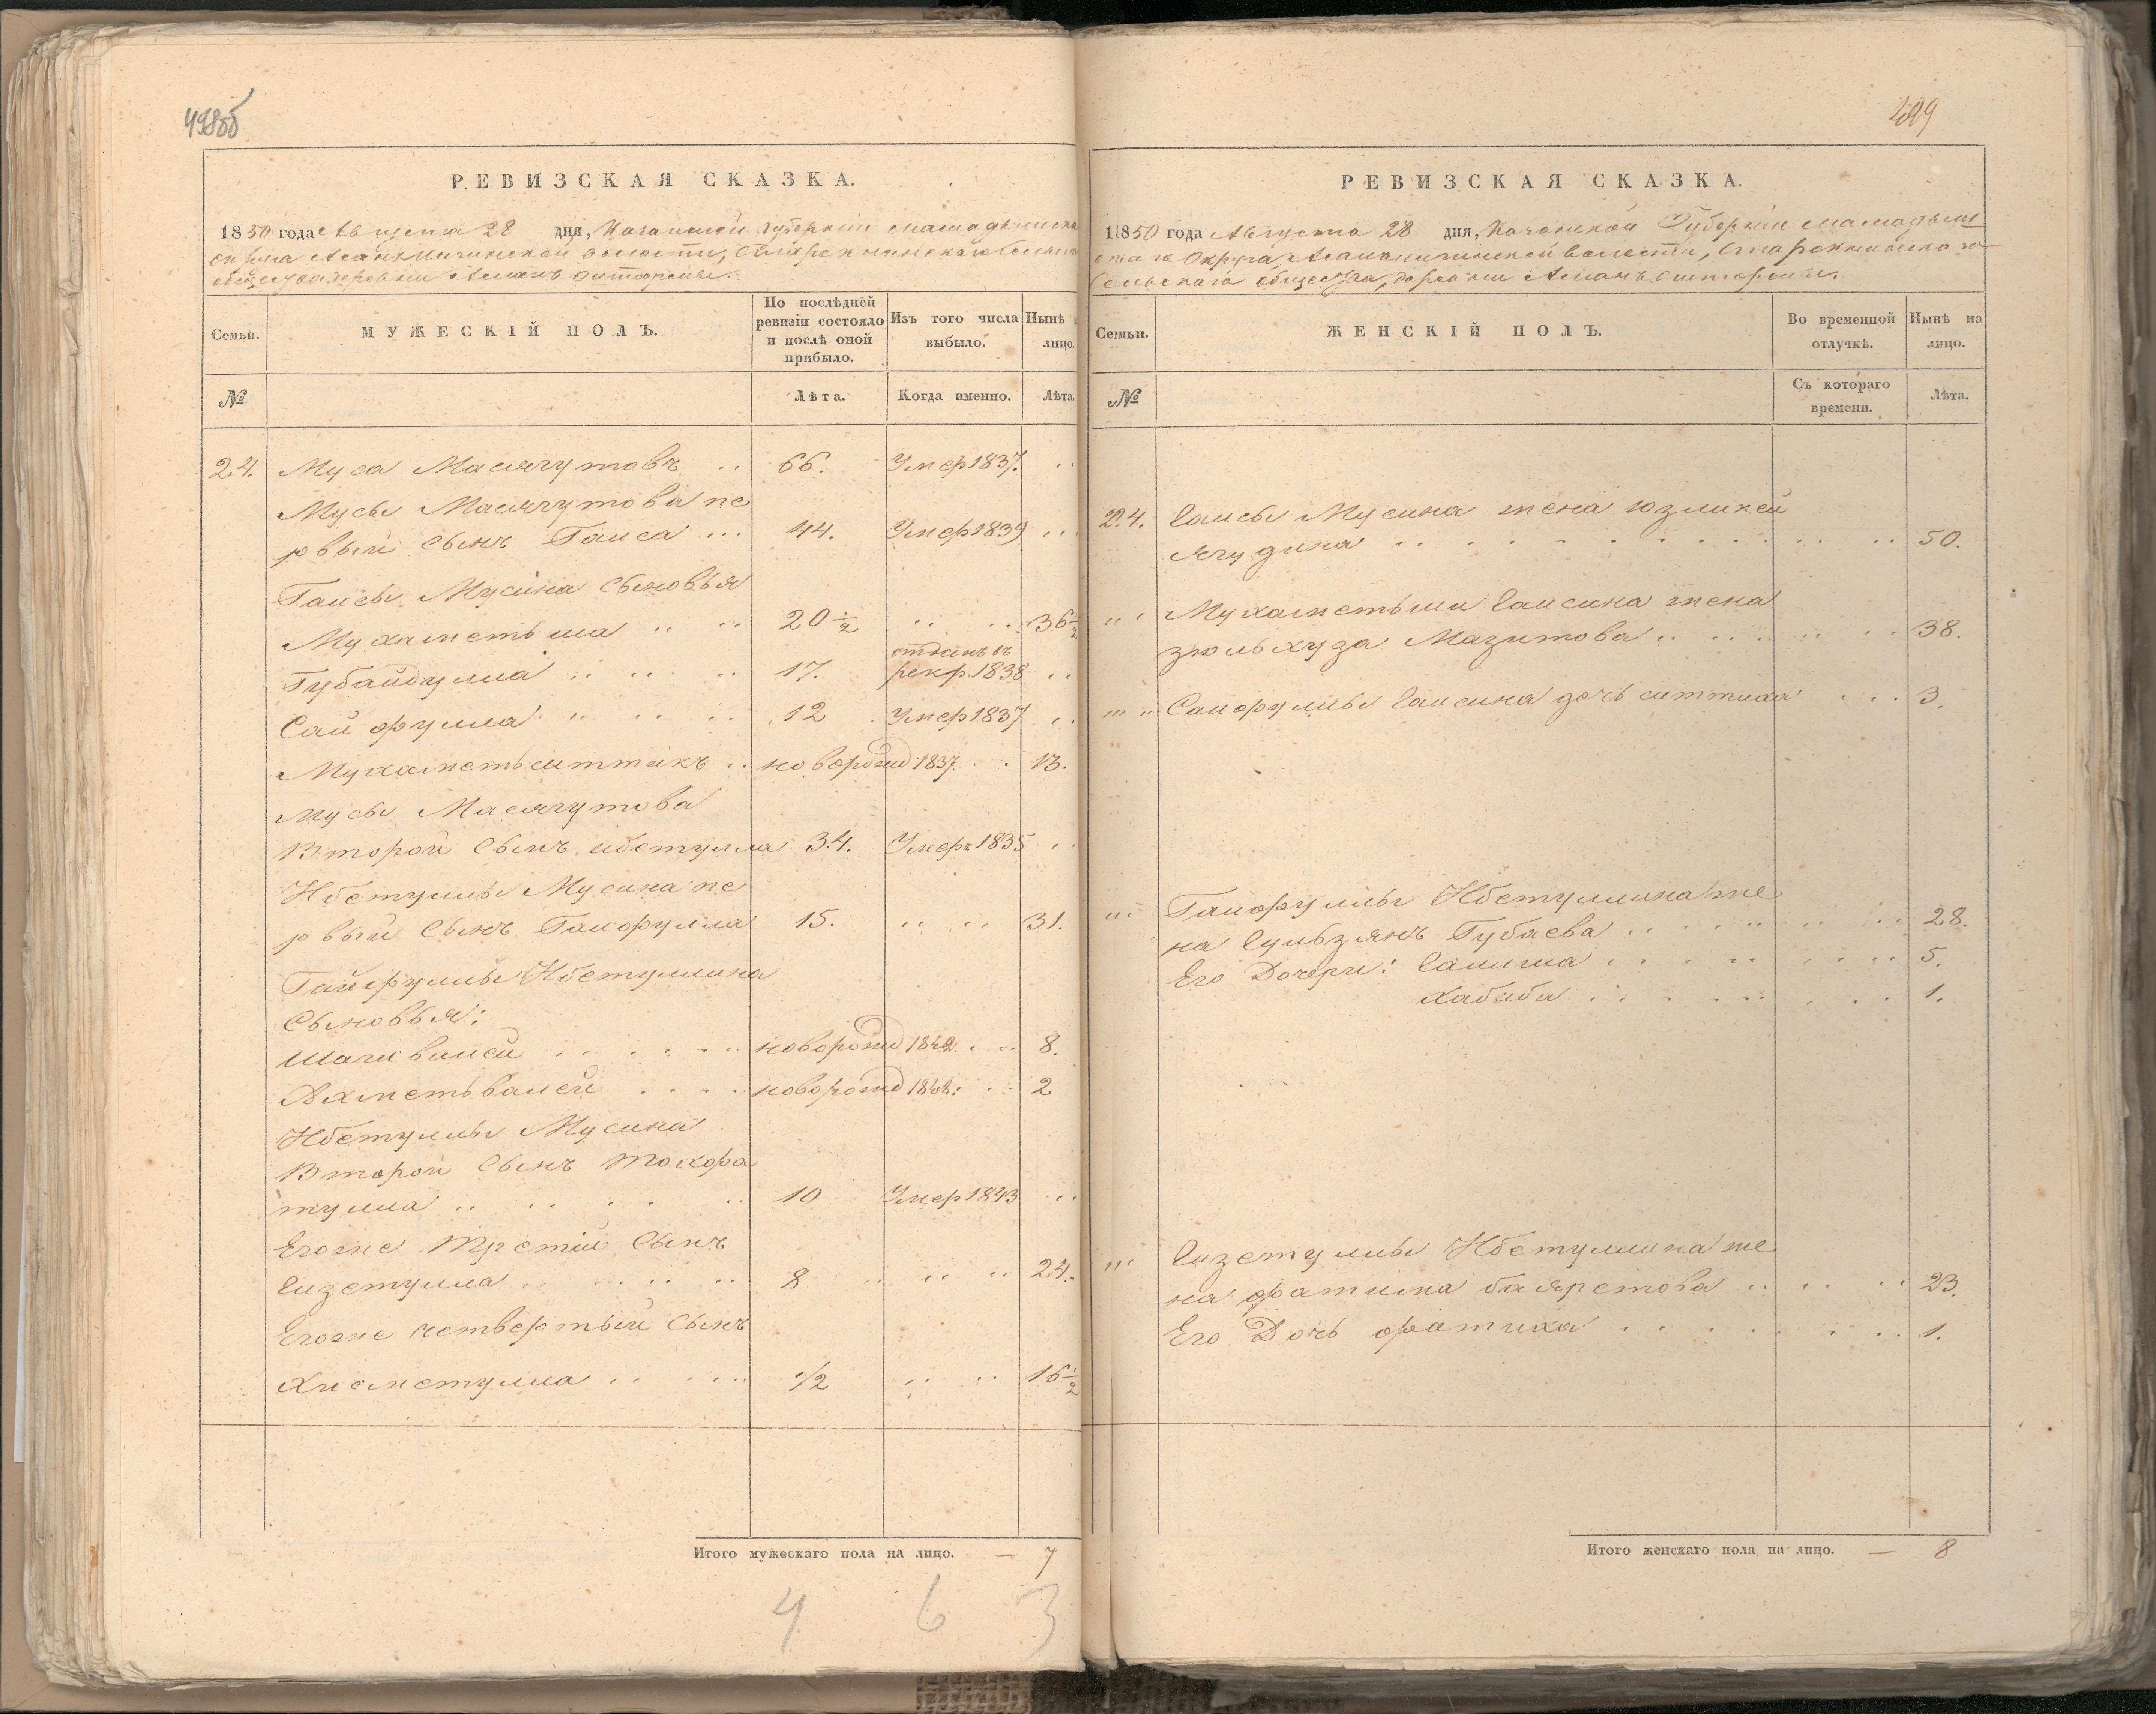 498об
РЕВИЗСКАЯ СКАЗКА.
1850 года Августа 28 дня, Казанской губернiи Мамадышска
округа волости, Сельска
общества деревни
Семьи.
МУЖЕСКІЙ ПОЛЪ.
По послѣдней ревизіи состояло и послѣ оной прибыло.
Изъ того числа выбыло.
Нынѣ
лицо.
№
Лѣта.
Когда именно.
Лѣта.
24. Муса Масягутовъ .. 66. Умер 1837. ..
Мусы Масягутова пе
рвый Сынъ Гаиса ... 44. Умер 1839 ..
Гаисы Мусина Сыновья
Мухаметьша .. .. 20 1/2 .. .. 36 1/2
отданъ въ
Губайдулла .. .. .. 17. рекр. 1838 ..
Сайфулла .. .. .. 12 Умер 1837 ..
Мухаметьситтикъ .. новорожд 1837 .. 13.
Мусы Масягутова
Второй Сынъ Ибетулла 34. Умеръ 1835 ..
Ибетуллы Мусина пе
рвый Сынъ Гайфулла 15. .. .. 31.
Гайфуллы Ибетуллина
Сыновья:
Шагивалей новорожд 1842. .. 8.
Ахметьвалей новорожд 1848. .. 2
Ибетуллы Мусина
Второй Сынъ
тулла .. .. .. 10 Умер 1843 ..
Егоже Третiй Сынъ
Гизетулла .. .. .. 8 .. .. .. 24.
Егоже четвертый Сынъ
Хисметулла .. .. 1/2 .. .. 16 1/2
Итого мужескаго пола на лицо. — 7
4 6 3
499
РЕВИЗСКАЯ СКАЗКА.
1850 года Августа 28 дня, Казанской Губернiи Мамадыш
скаго Округа, волости,
Сельскаго общества, деревни
Семьи.
ЖЕНСКІЙ ПОЛЪ.
Во временной отлучкѣ.
Нынѣ на лицо.
№
Съ котораго времени.
Лѣта.
24. Гаисы Мусина жена Юзликей
Ягудина .. .. .. 50.
Мухаметьши Гаисина жена
Зюльхуза Мазитова .. .. 38.
Сайфуллы Гаисина дочь Ситтика ... 3.
Гайфуллы Ибетуллина же
на Гульзянъ Губаева .. .. 28.
Его Дочери: Галима .. .. 5.
Хабиба .. .. 1.
Гизетуллы Ибетуллина же
на Фатима .. .. 23.
Его Дочь Фатиха .. .. 1.
Итого женскаго пола на лицо. — 8